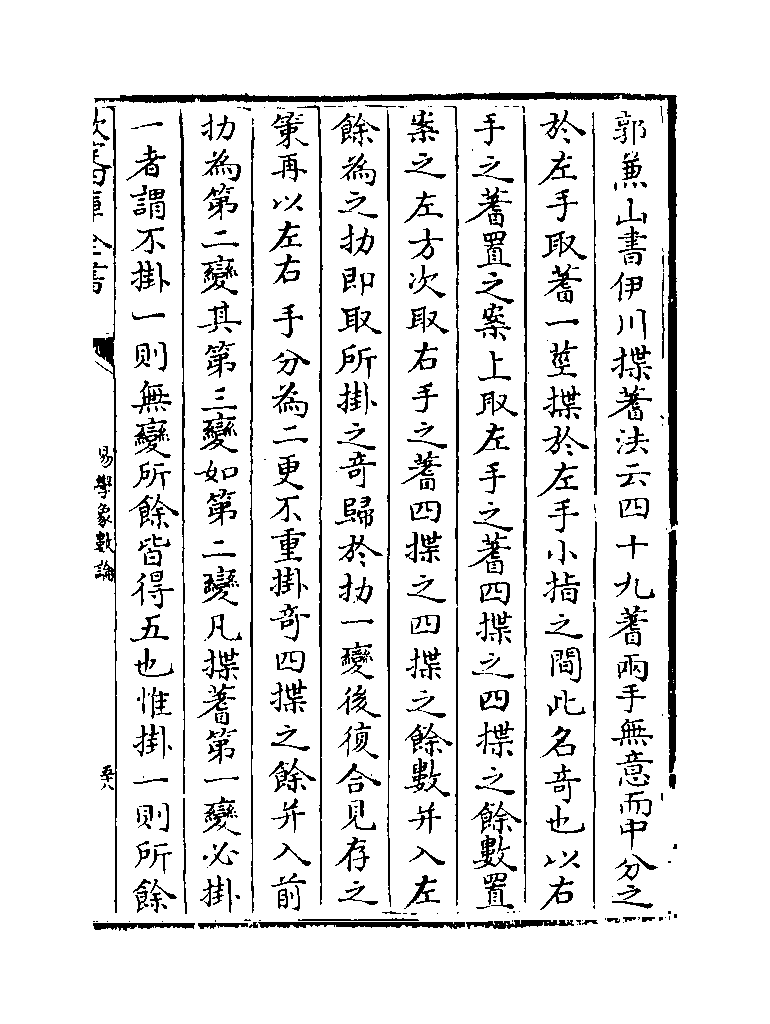 郭兼山書伊川揲蓍法云四十九蓍兩手無意而中分之
於左手取蓍一莖揲於左手小指之間此名奇也以右
手之蓍置之案上取左手之蓍四揲之四揲之餘數置
案之左方次取右手之蓍四揲之四揲之餘數并入左
餘為之扐即取所掛之奇歸於扐一變後復合見存之
策再以左右手分為二更不重掛奇四揲之餘并入前
扐為第二變其第三變如第二變凡揲蓍第一變必掛
一者謂不掛一則無變所餘皆得五也惟掛一則所餘
欽定四庫全書
易學象數論